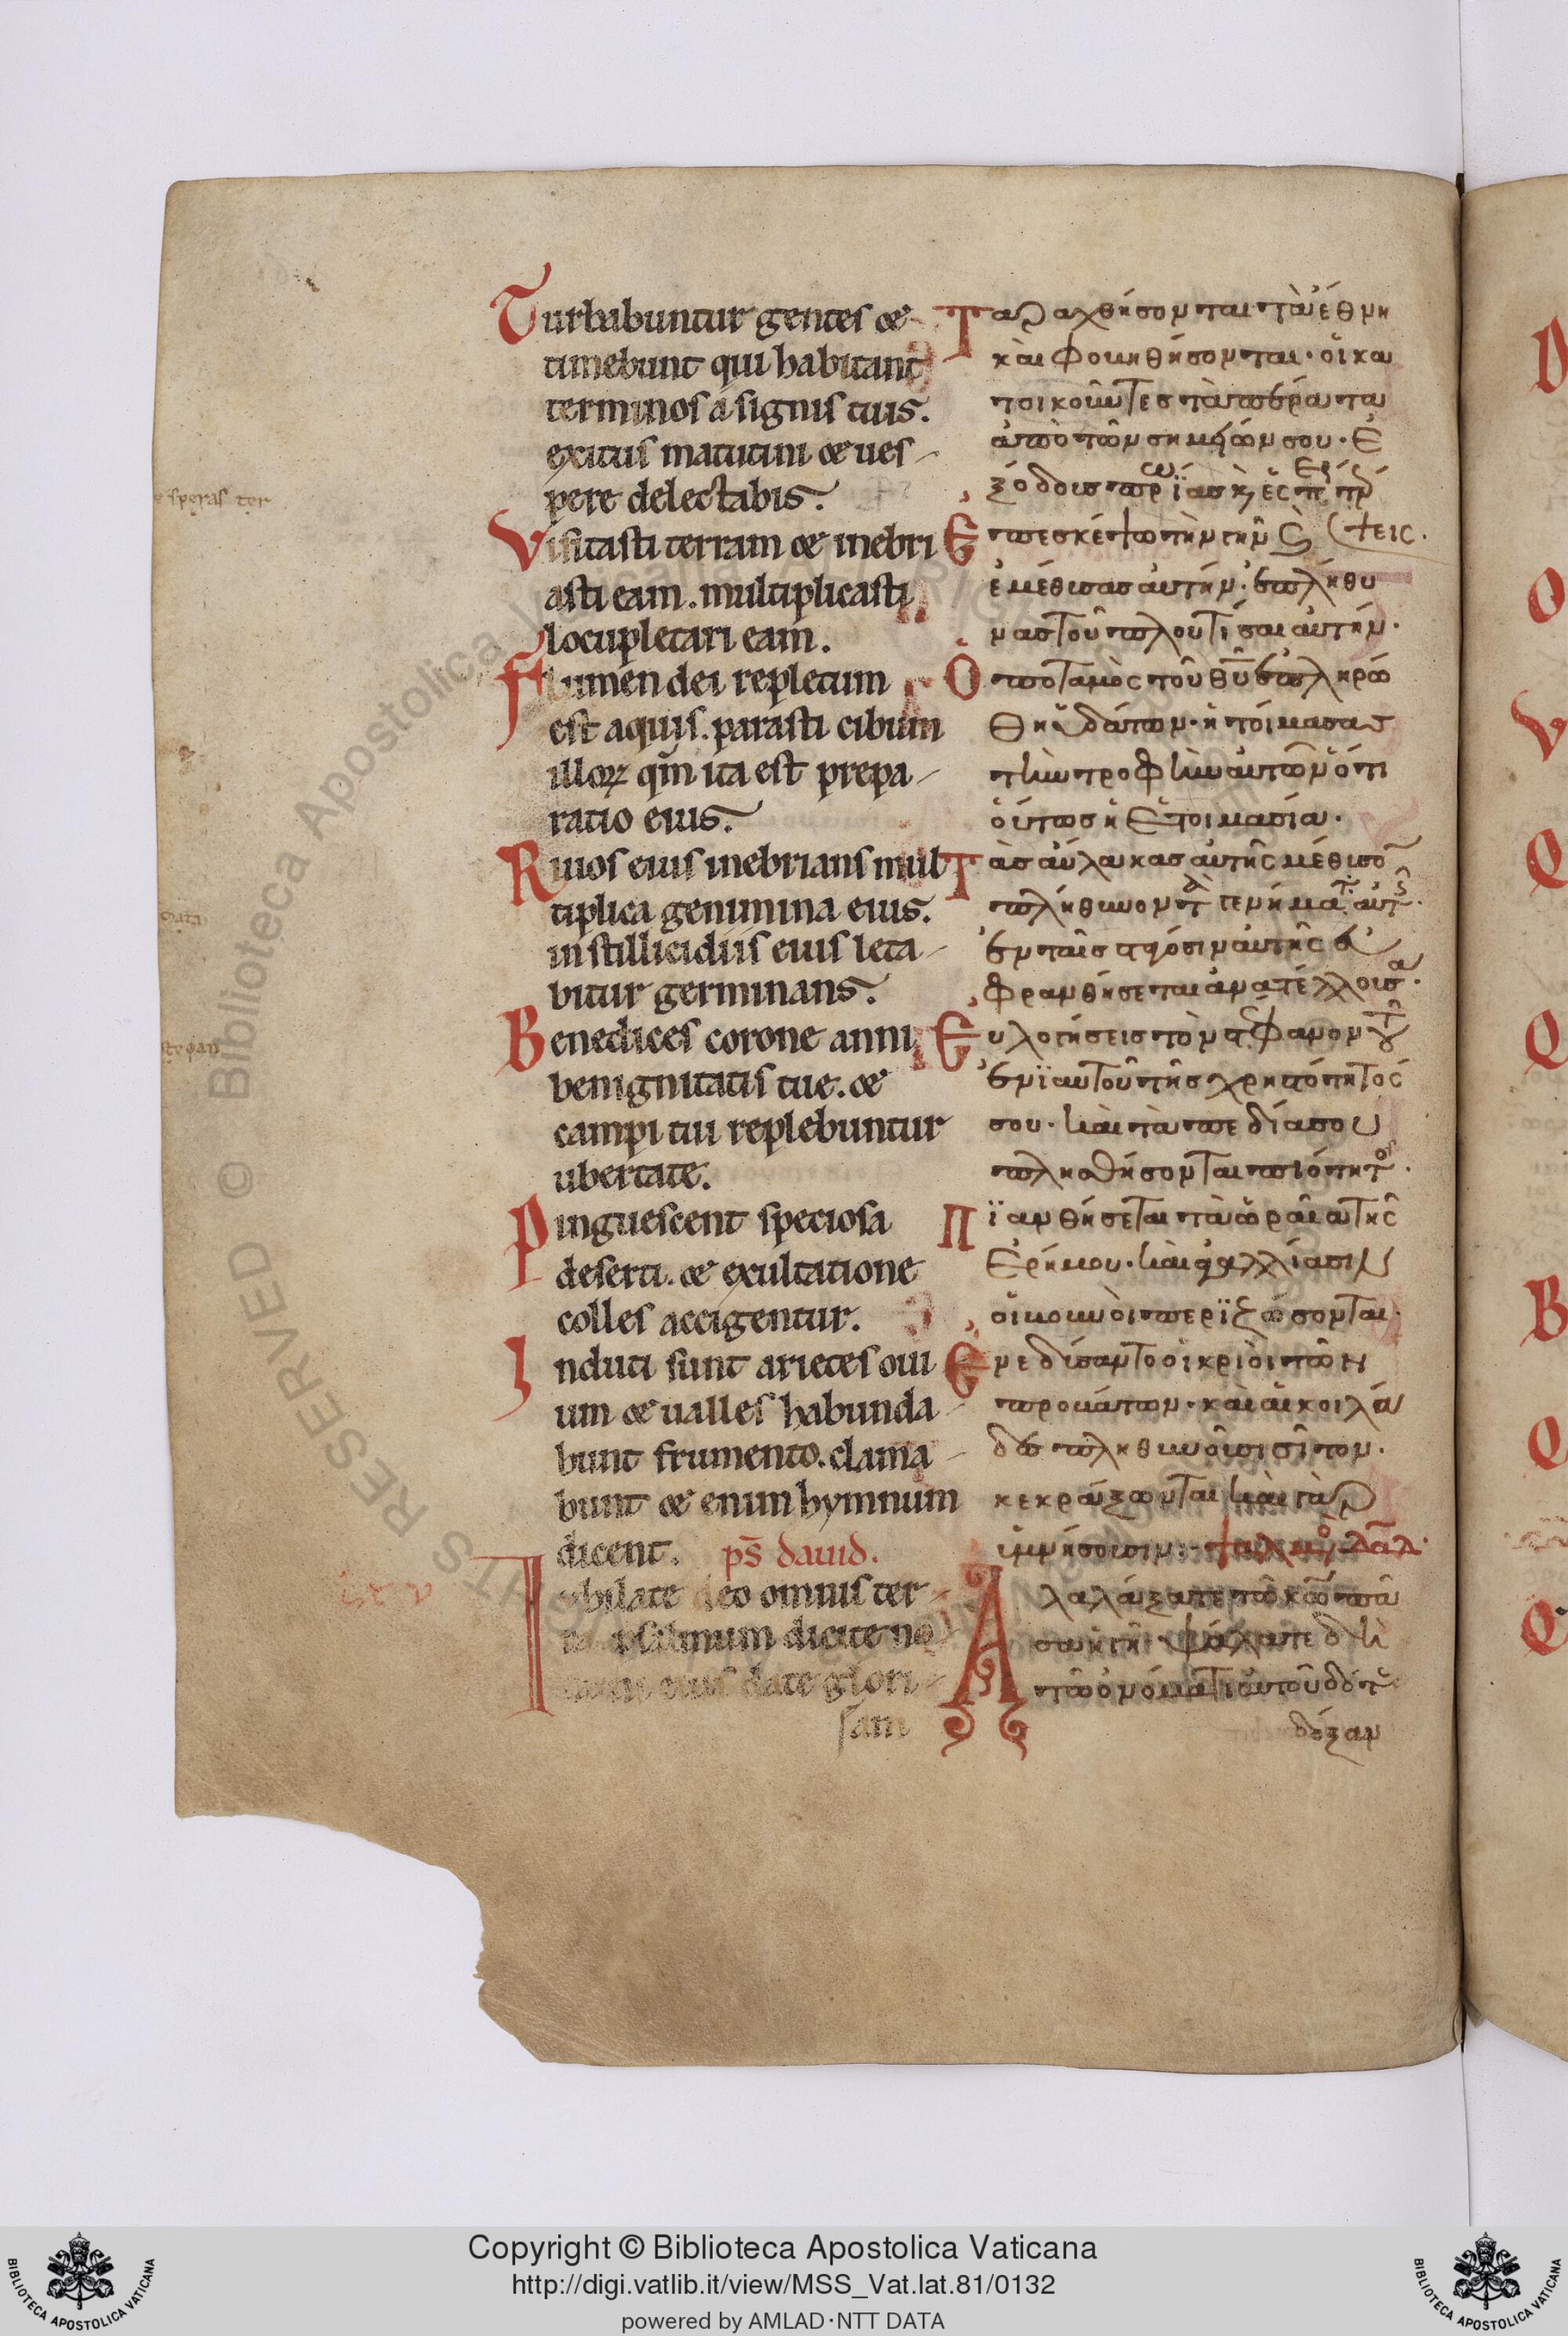 Turbabuntur gentes &
timebunt qui habitant
terminos a signis tuis.
exitus matutini & ues-
pere delectabis.
Visitasti terram & inebri
asti eam. multiplicasti
locupletari eam.
Flumen dei repletum
est aquis. parasti cibum
illoꝝ qm̅ ita est prepa-
ratio eius.
Riuos eius inebrians mul
tiplica genimina eius.
in stillicidiis eius leta-
bitur germinans.
Benedices corone anni
benignitatis tue. &
campi tui replebuntur
ubertate.
Pinguescent speciosa
deserti. & exultatione
colles accigentur.
Induti sunt arietes oui
um & ualles habunda-
bunt frumento. clama-
bunt & enim hymnum
dicent. ps̅ dauid.
Iubilate deo omnis ter-
ra psalmum dicite no
eius date glori-
am
Ταραχθήσονται τὰ ἔθνη
καὶ φουηθήσονται. οἱ κα
τοικοῦντες τὰ πέρατα
ἀπὸ τῶν σημείων σου. ἐ
Ἐπεσκέψω τὴν γῆν
ἐμέθισας αὐτήν. ἐπλήθυ
νας τοῦ πλουτίσαι αὐτήν.
Ὁ ποταμὸς τοῦ θῦ ἐπληρώ
θη ὑδάτων. ἡτοίμασας
τὴν τροφὴν αὐτῶν ὅτι
οὕτως ἡ ἑτοιμασία.
Τὰς αὔλακας αὐτῆς μέθισο̅
ἐν ταῖς αὐτῆς
φρανθήσεται ἀνατέλλουσα.
Εὐλογήσεις τὸν στέφανον τοῦ
ἐνϊαυτοῦ τῆς χρηστότητός
σου. καὶ τὰ πεδία σου
πλησθήσονται πιότητος.
Πϊανθήσεται τὰ ὡραῖα τῆς
ἐρήμου. καὶ ἀγαλλίασιν
οἱ βουνοὶ περϊζώσονται.
Ἐνεδύσαντο οἱ κριοὶ τῶν
προυάτων. καὶ αἱ κοιλά
δες πληθυνοῦσι σῖτον.
κεκράξονται καὶ γὰρ
ὑμνήσουσιν: ψαλμὸς δα̅δ.
Ἀλαλάξατε τῷ κω̅ πᾶ
σα ἡ γῆ. ψάλατε δὴ
τῷ ὀνόματι αὐτοῦ δότε
δόξαν
speras ter
lxv
RESERVED © Biblioteca Apostolica
Copyright © Biblioteca Apostolica Vaticana
http://digi.vatlib.it/view/MSS_Vat.lat.81/0132
powered by AMLAD·NTT DATA
BIBLIOTECA APOSTOLICA VATICANA
BIBLIOTECA APOSTOLICA VATICANA